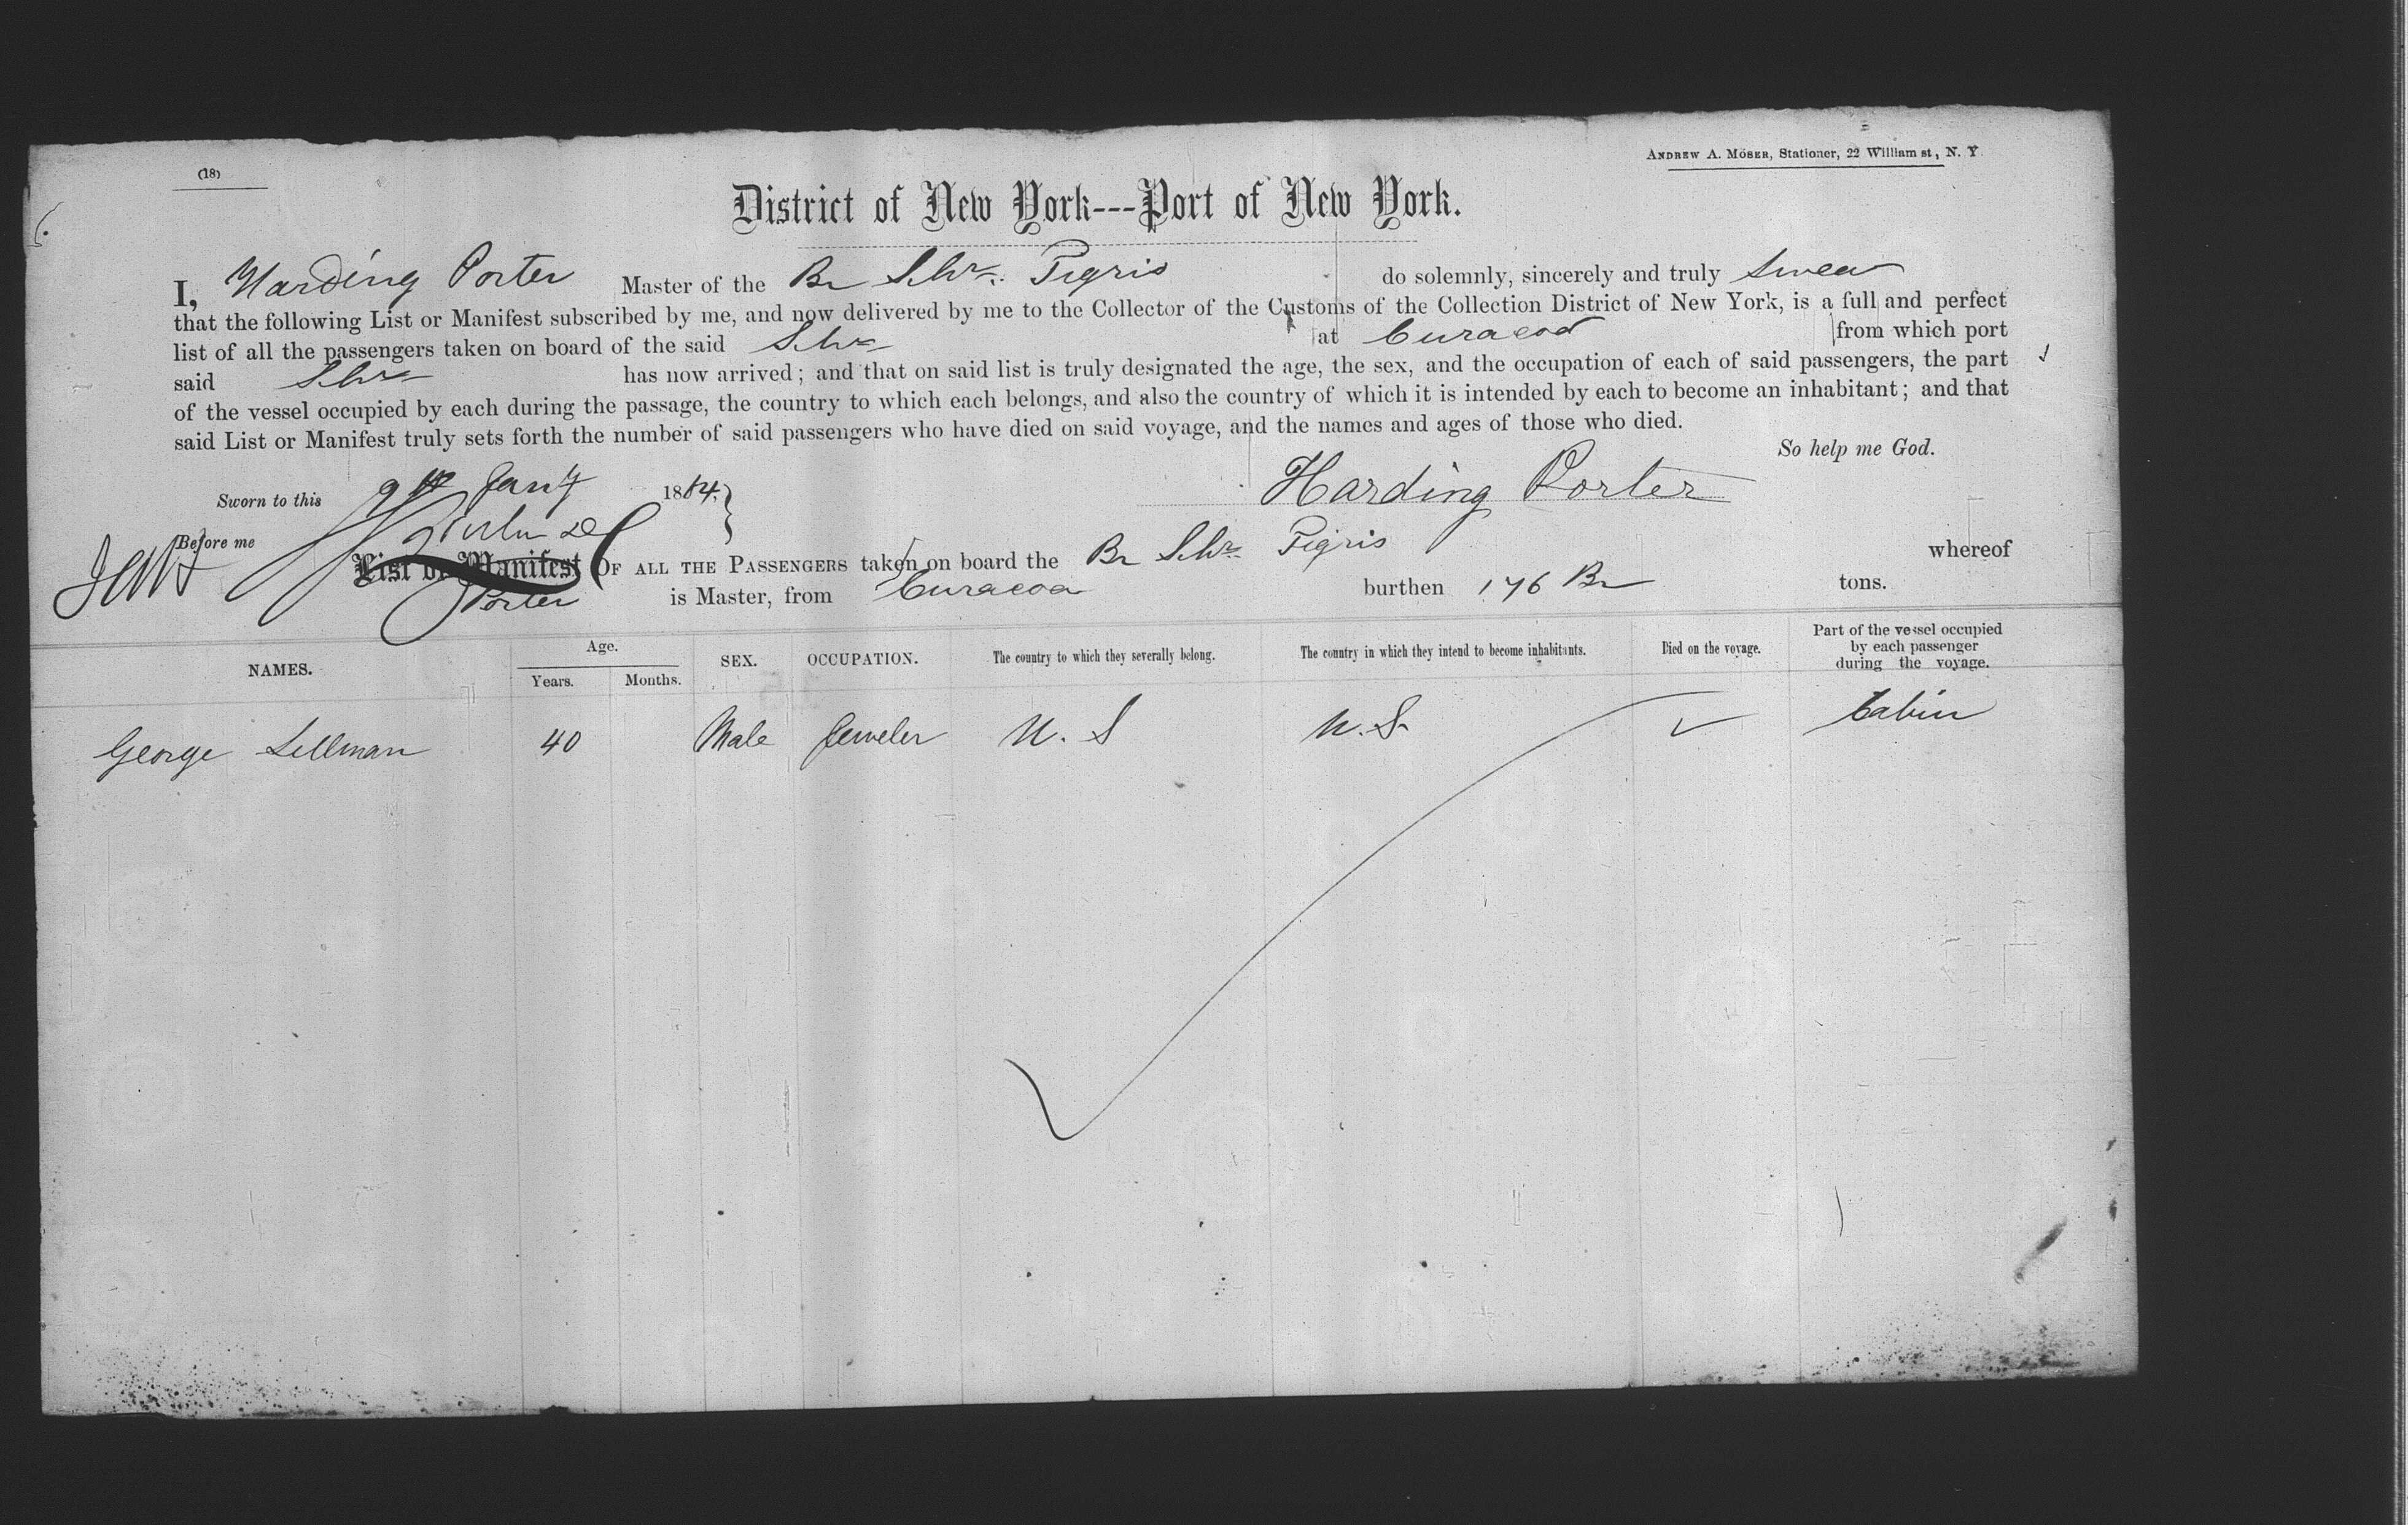 (18)
ANDREW A. MÖSER, Stationer, 22 William st, N. Y.
District of New York---Port of New York.
I, Harding Porter Master of the Br Schr. Tigris do solemnly, sincerely and truly swear
that the following List or Manifest subscribed by me, and now delivered by me to the Collector of the Customs of the Collection District of New York, is a full and perfect
list of all the passengers taken on board of the said Schr at Curacoa from which port
said Schr has now arrived; and that on said list is truly designated the age, the sex, and the occupation of each of said passengers, the part
of the vessel occupied by each during the passage, the country to which each belongs, and also the country of which it is intended by each to become an inhabitant; and that
said List or Manifest truly sets forth the number of said passengers who have died on said voyage, and the names and ages of those who died.
So help me God.
Sworn to this 9th Jany 1864
Harding Porter
Before me
List or Manifest OF ALL THE PASSENGERS taken on board the Br Schr Tigris whereof
Porter is Master, from Curacoa burthen 176 Br tons.
NAMES. Age. Years. Months. SEX. OCCUPATION. The country to which they severally belong. The country in which they intend to become inhabitants. Died on the voyage. Part of the vessel occupied by each passenger during the voyage.
George Sellman 40 Male Jeweler U. S U. S. Cabin